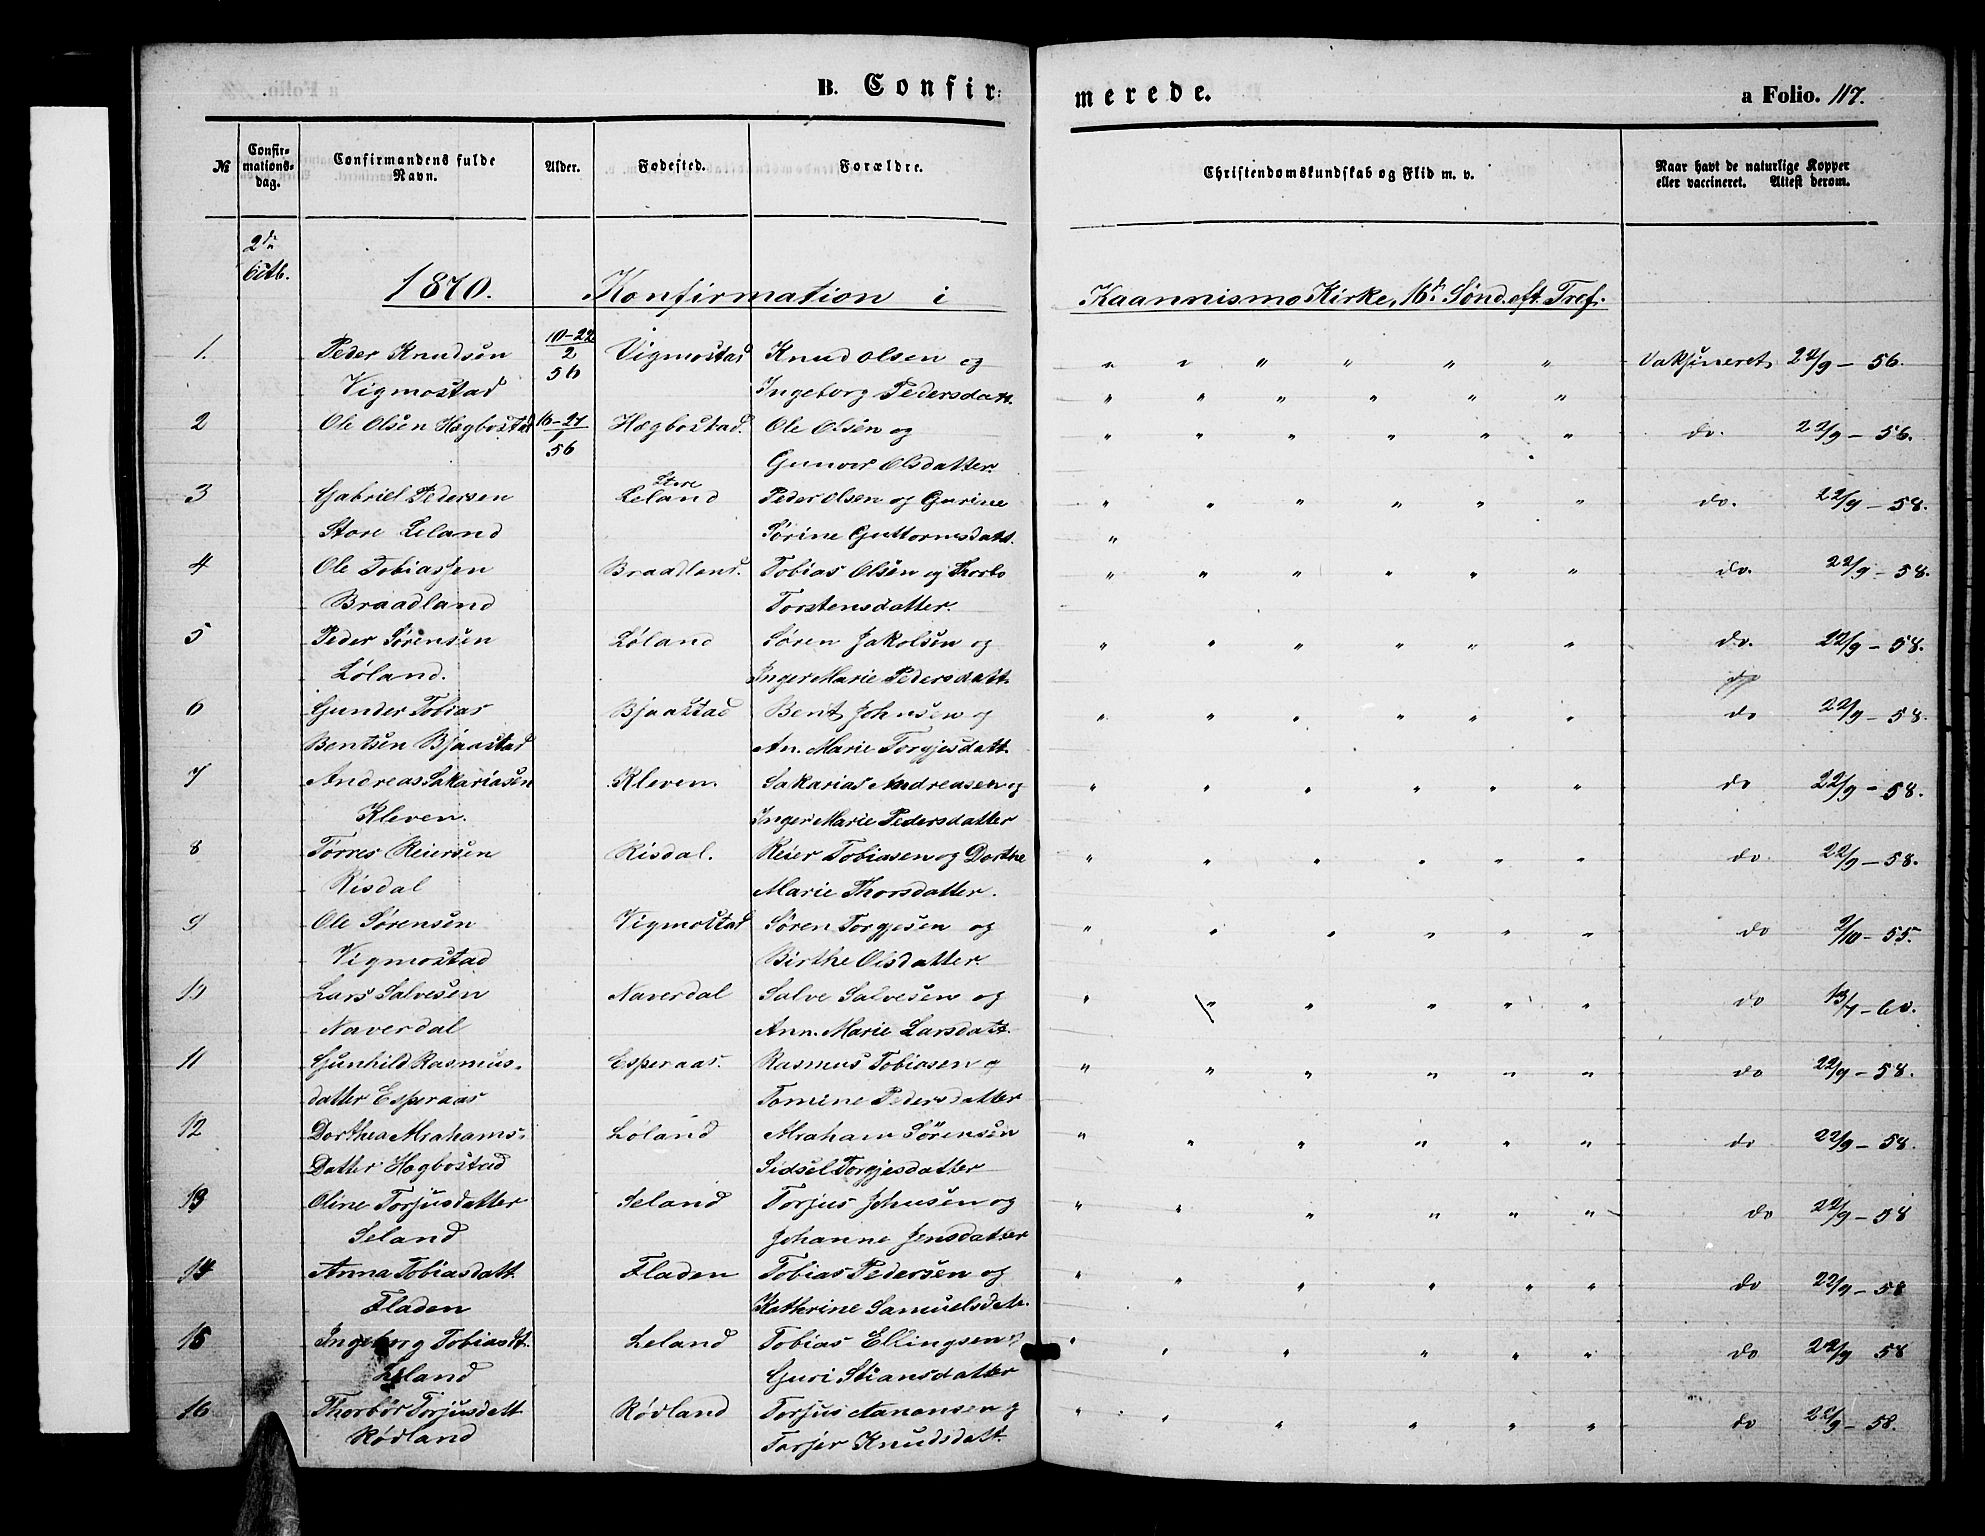 B. Confirmerede.
a Folio. 117.
№ Confirmationsdag. Confirmandens fulde Navn. Alder. Fødested. Forældre. Christendomskundskab og Flid m. v. Naar havt de naturlige Kopper eller vaccineret. Attest derom.
2d
1870. Konfirmation i Kirke, 16d Sønd. eft. Tref.
1. Peder Knudsen 10-22/2 Vigmostad Knud Olsen og " " " " " " Vaksineret 22/9 - 56.
Vigmostad 56 Ingeborg Pedersdatt. " " " " " "
2 Ole Olsen Hægbostad 16-27/1 Hægbostad. Ole Olsen og " " " " " " do. 22/9 - 56.
56 Gunvor Olsdatter.
3 Gabriel Pedersen Store Leland Peder Olsen og Gurine " " " " " " do. 22/9 - 58.
Store Leland Sørine Guttormsdatt. "
4 Ole Tobiassen Braadland. Tobias Olsen og Thorbo " " " " " " do. 22/9 - 58.
Braadland Torstensdatter.
5 Peder Sørensen Løland Søren Jakobsen og " " " " " " do. 22/9 - 58.
Løland. Inger Marie Pedersdatt.
6 Gunder Tobias Bjaastad Bent Johnsen og " " " " " " do 22/9 - 58.
Bentsen Bjaastad An. Marie Torgjesdatt.
7 Andreas Sakariasen Kleven. Sakarias Andreasen og " " " " " " do 22/9 - 58.
Kleven. Inger Marie Pedersdatter
8 Torres Reiersen Risdal. Reier Tobiasen og Dorthe " " " " " " do. 22/9 - 58.
Risdal Marie Thorsdatter.
9 Ole Sørensen Vigmostad Søren Torgjesen og " " " " " " do 2/10 - 55.
Vigmostad Birthe Olsdatter.
10 Lars Salvesen Naverdal Salve Salvesen og " " " " " " do 13/7 - 60.
Naverdal Ann. Marie Larsdatt.
11 Gunhild Rasmus- Esperaas. Rasmus Tobiasen og " " " " " " do 22/9 - 58.
datter Esperaas Tomine Pedersdatter
12 Dorthea Abrahams- Løland Abraham Sørensen " " " " " " do 22/9 - 58.
Datter Hægbostad Sidsel Torgjesdatter
13 Oline Torjusdatter Seland Torjus Johnsen og " " " " " " do 22/9 - 58
Seland Johanne Jensdatter
14 Anna Tobiasdatt Fladen Tobias Pedersen og " " " " " " do 22/9 - 58
Fladen Kathrine Samuelsdatt.
15 Ingeborg Tobiasdt. Leland Tobias Ellingsen og " " " " " " do 22/9 58
Leland Guri Stiansdatter
16 Thorbør Torjusdatt Rødland Torjus Aanonsen og " " " " " " do 22/9 - 58.
Rødland Torjer Knudsdatt.